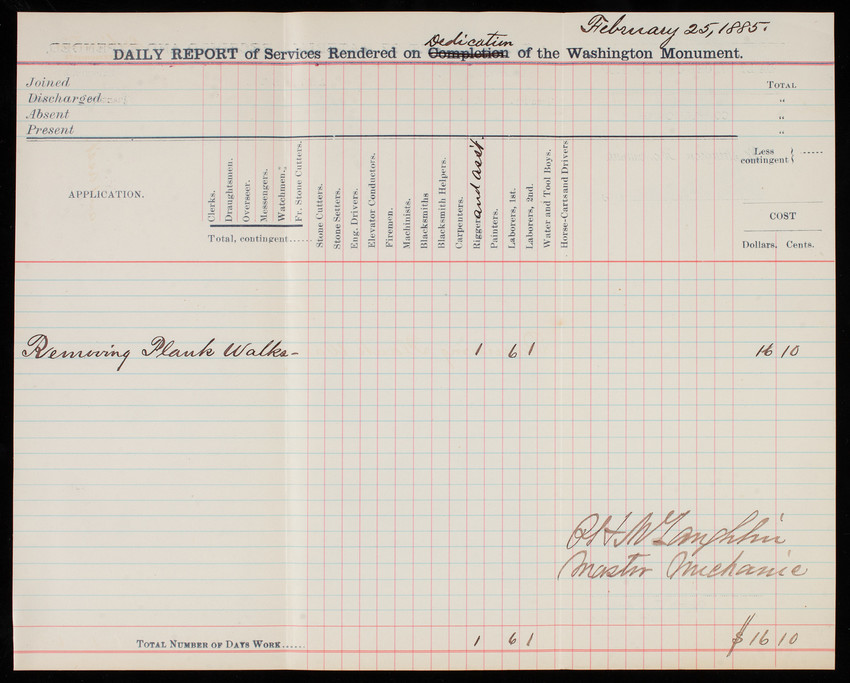 February 25, 1885.
Dedication
DAILY REPORT of Services Rendered on Completion of the Washington Monument.
Joined TOTAL
Discharged "
Absent "
Present "
Less contingent } .....
APPLICATION.
Clerks.
Draughtsmen.
Overseer.
Messengers.
Watchmen.
Fr. Stone Cutters.
Total, contingent......
Stone Cutters.
Stone Setters.
Eng. Drivers.
Elevator Conductors.
Firemen.
Machinists.
Blacksmiths
Blacksmith Helpers.
Carpenters.
Rigger and ass't.
Painters.
Laborers, 1st.
Laborers, 2nd.
Water and Tool Boys.
Horse-Carts and Drivers.
COST
Dollars. Cents.
Removing Plank Walks- 1 6 1 16 10
McLaughlin
Master Mechanic
TOTAL NUMBER OF DAYS WORK...... 1 6 1 $16 10